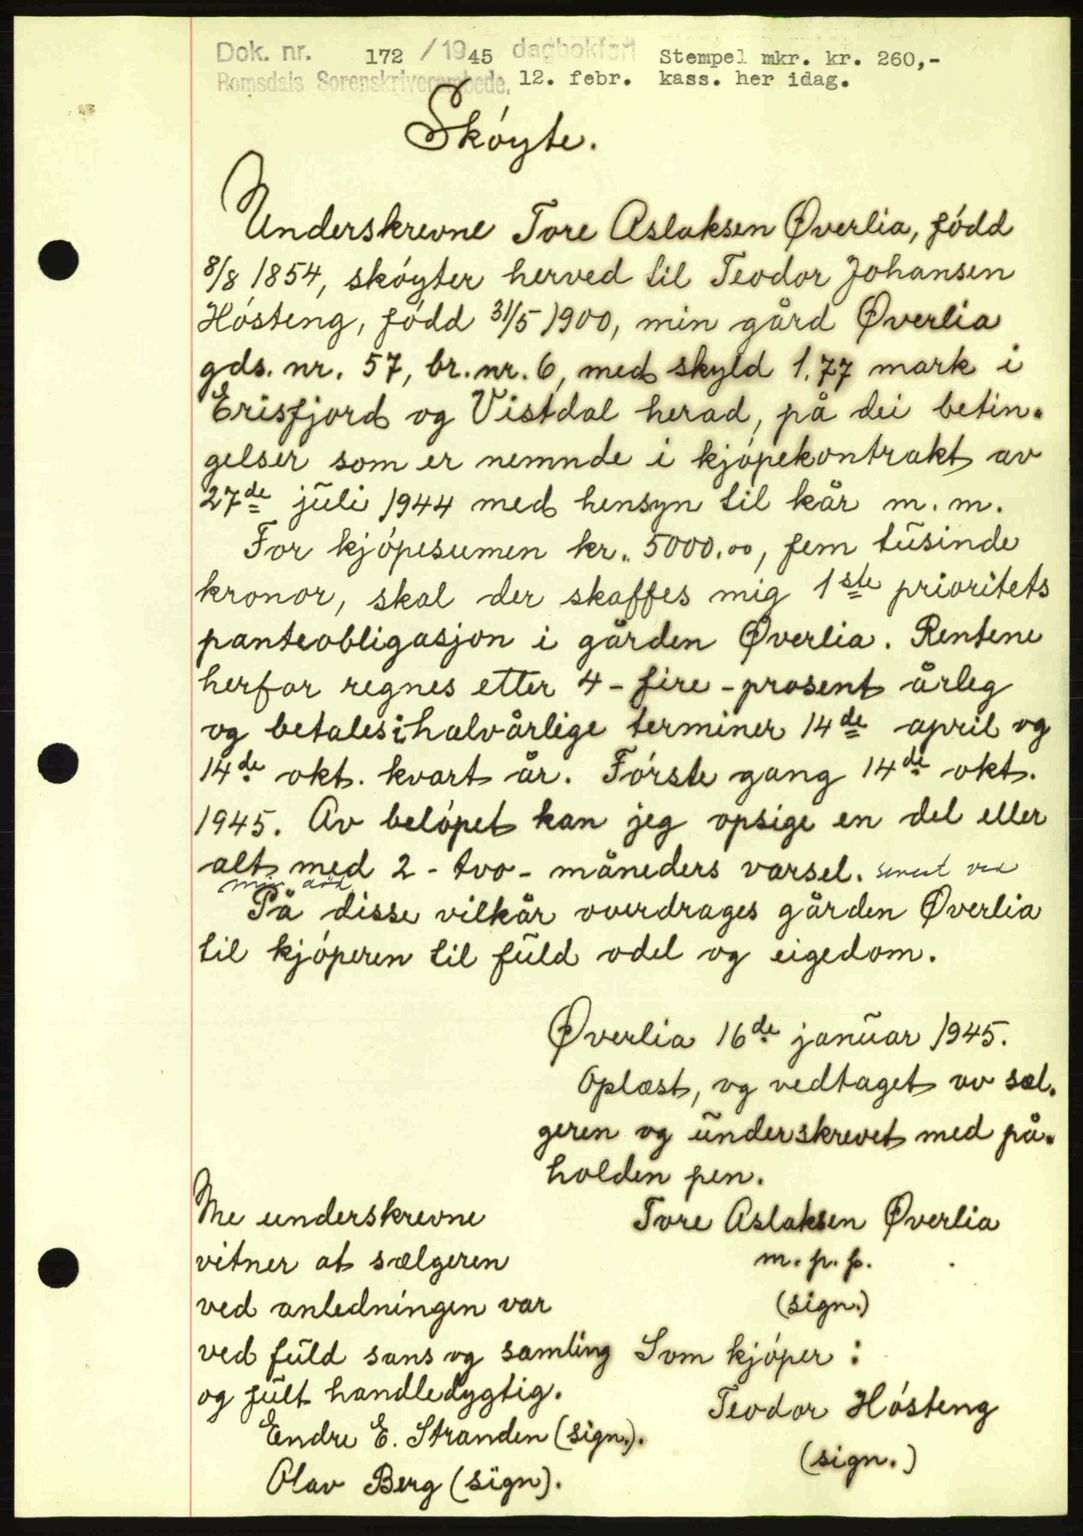 Dok. nr. 172 / 1945 dagbokført Stempel mkr. kr. 260,-
Romsdals Sorenskriverembede. 12. febr. kass. her idag.
Skóyte.
Underskrevne Tore Aslaksen Øverlia, fódd
8/8 1854, skóyter herved til Teodor Johansen
Hósteng, fódd 31/5 1900, min gård Øverlia
gds. nr. 57, br. nr. 6, med skyld 1.77 mark i
Erisfjord og Vistdal herad, på dei betin-
gelser som er nemnde i kjópekontrakt av
27de juli 1944 med hensyn til kår m. m.
For kjópesumen kr. 5000.00, fem tusinde
kronor, skal der skaffes mig 1ste prioritets
panteobligasjon i gården Øverlia. Rentene
herfor regnes etter 4 - fire - prosent årleg
og betales i halvårlige terminer 14de april og
14de okt. kvart år. Fórste gang 14de okt.
1945. Av belópet kan jeg opsige en del eller
alt med 2 - tvo - måneders varsel. senest ved
min död
På disse vilkår overdrages gården Øverlia
til kjóperen til fuld odel og eigedom.
Øverlia 16de januar 1945.
Oplæst, og vedtaget av sæl-
geren og underskrevet med på-
holden pen.
Me underskrevne
vitner at sælgeren
ved anledningen var
ved fuld sans og samling
og fult handledygtig.
Endre E. Stranden (sign.).
Olav Berg (sign).
Tore Aslaksen Øverlia
m. p. p.
(sign.)
Som kjóper :
Teodor Hósteng
(sign.)